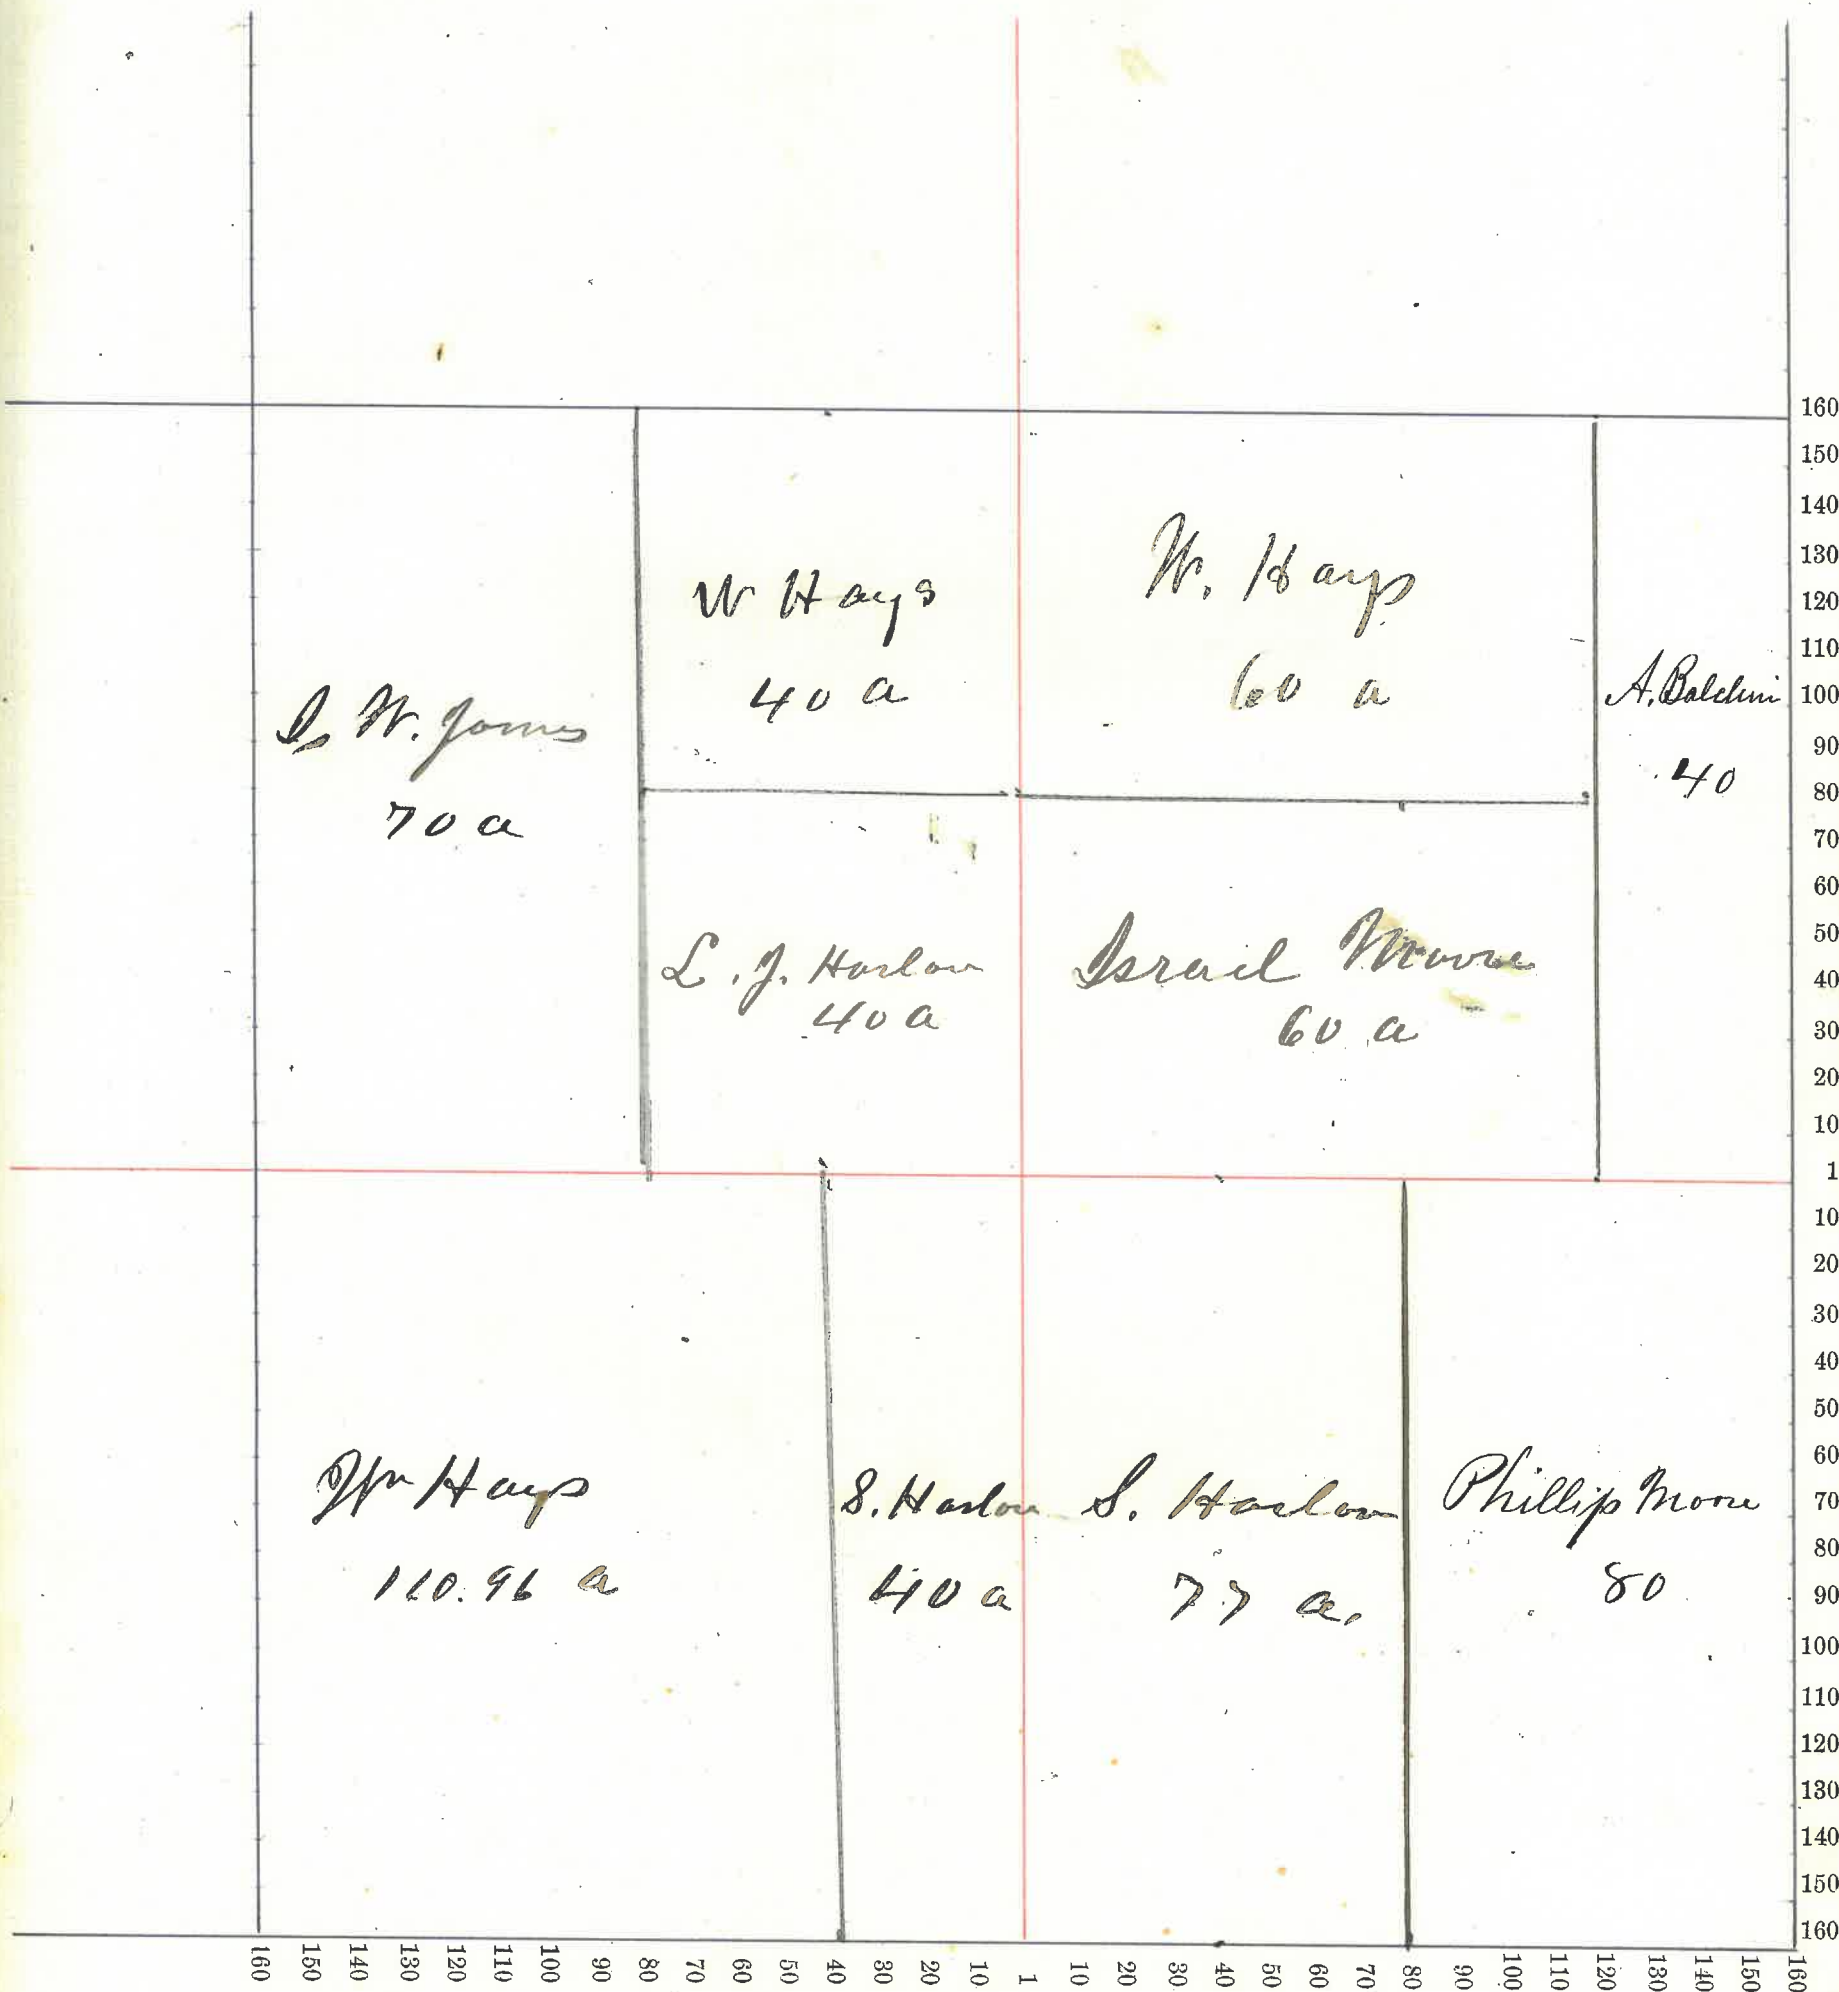 W Hays
40 a
W. Hays
60 a
W. Jones
70 a
A.
40
L. J. Harlow
40 a
Israel Moore
60 a
Wm Hays
110.96 a
S. Harlow
40 a
S. Harlow
77 a.
Phillip Moore
80
160
150
140
130
120
110
100
90
80
70
60
50
40
30
20
10
1
10
20
30
40
50
60
70
80
90
100
110
120
130
140
150
160
160 150 140 130 120 110 100 90 80 70 60 50 40 30 20 10 1 10 20 30 40 50 60 70 80 90 100 110 120 130 140 150 160